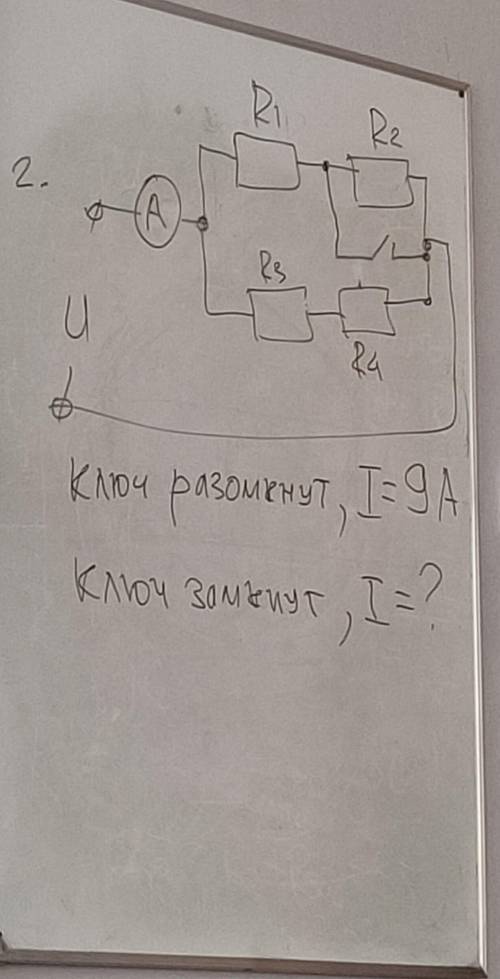 2.
R1
R2
A
R3
R4
U
Ключ разомкнут, I=9A
Ключ замкнут, I=?